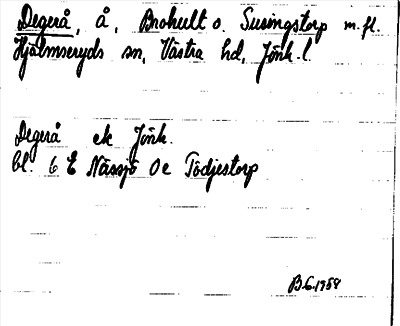 Degerå, å, Brohult o. Susingstorp m.fl.
Hjälmseryds sn, Västra hd, Jönk. l.
Degerå ek Jönk.
bl. 6 E Nässjö 0e Tödjestorp
B.G. 1958